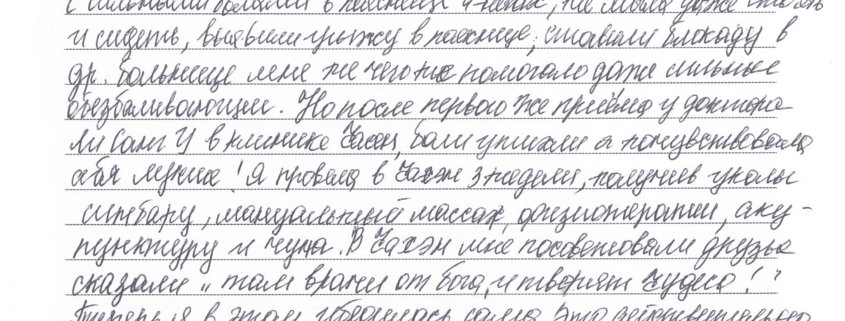 с сильными болями в пояснице и ногах, не могла даже стоять
и сидеть, выявили грыжу в пояснице, ставили блокаду в
др. больнице мне не чего не помогало даже сильные
обезбаливающии. Но после первого же приёма у доктора
Ли Санг У в клинике Чаен, боли утихли я почувствовала
себя лучше! Я провела в Чахэн 3 недели, получив уколы
синбару, мануальный массаж, физиотерапии, аку-
пунктуру и чуна. В Чахэн мне посоветовали друзья
сказали „там врачи от бога, и творят чудеса!"
Теперь я в этом убедилась сама это действительно